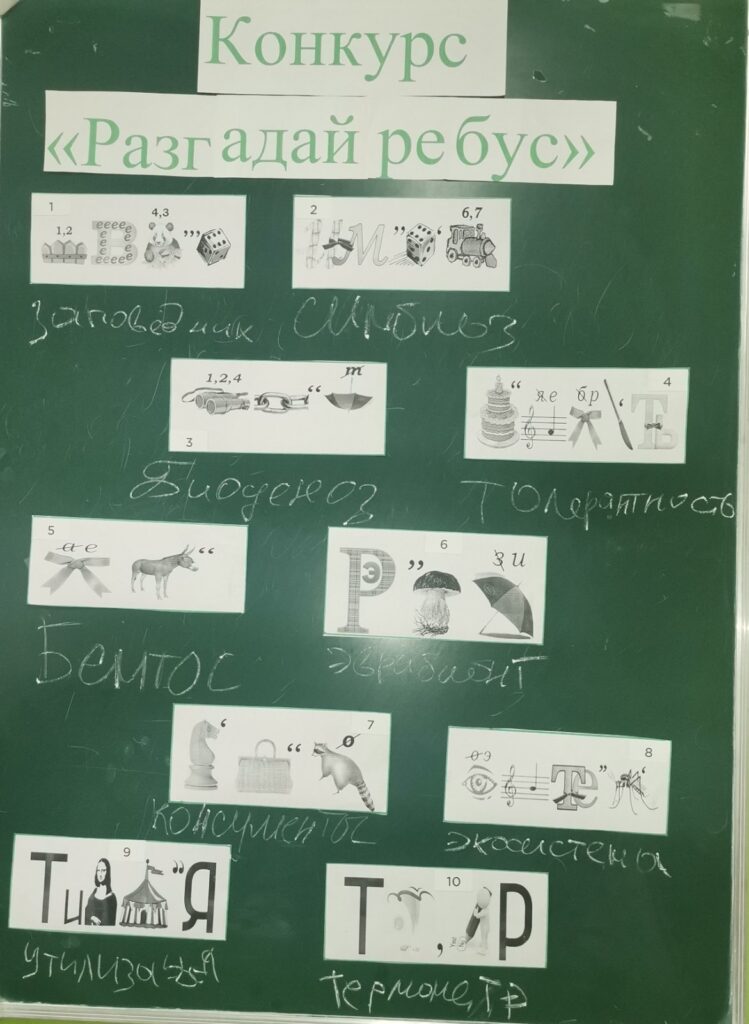 Конкурс
«Разгадай ребус»
1
1,2
4,3
,,,
2
,,
‘
6,7
заповедник
симбиоз
1,2,4
“
т
3
“
яе
бр
‘
ть
4
Биоценоз
толерантность
5
ае
“
6
Р
Э
”
зи
Бентос
эврибионт
7
‘
“
о
8
оэ
те
”
‘
консументы
экосистемы
9
Ти
”
Я
10
Т
,
Р
утилизация
термометр